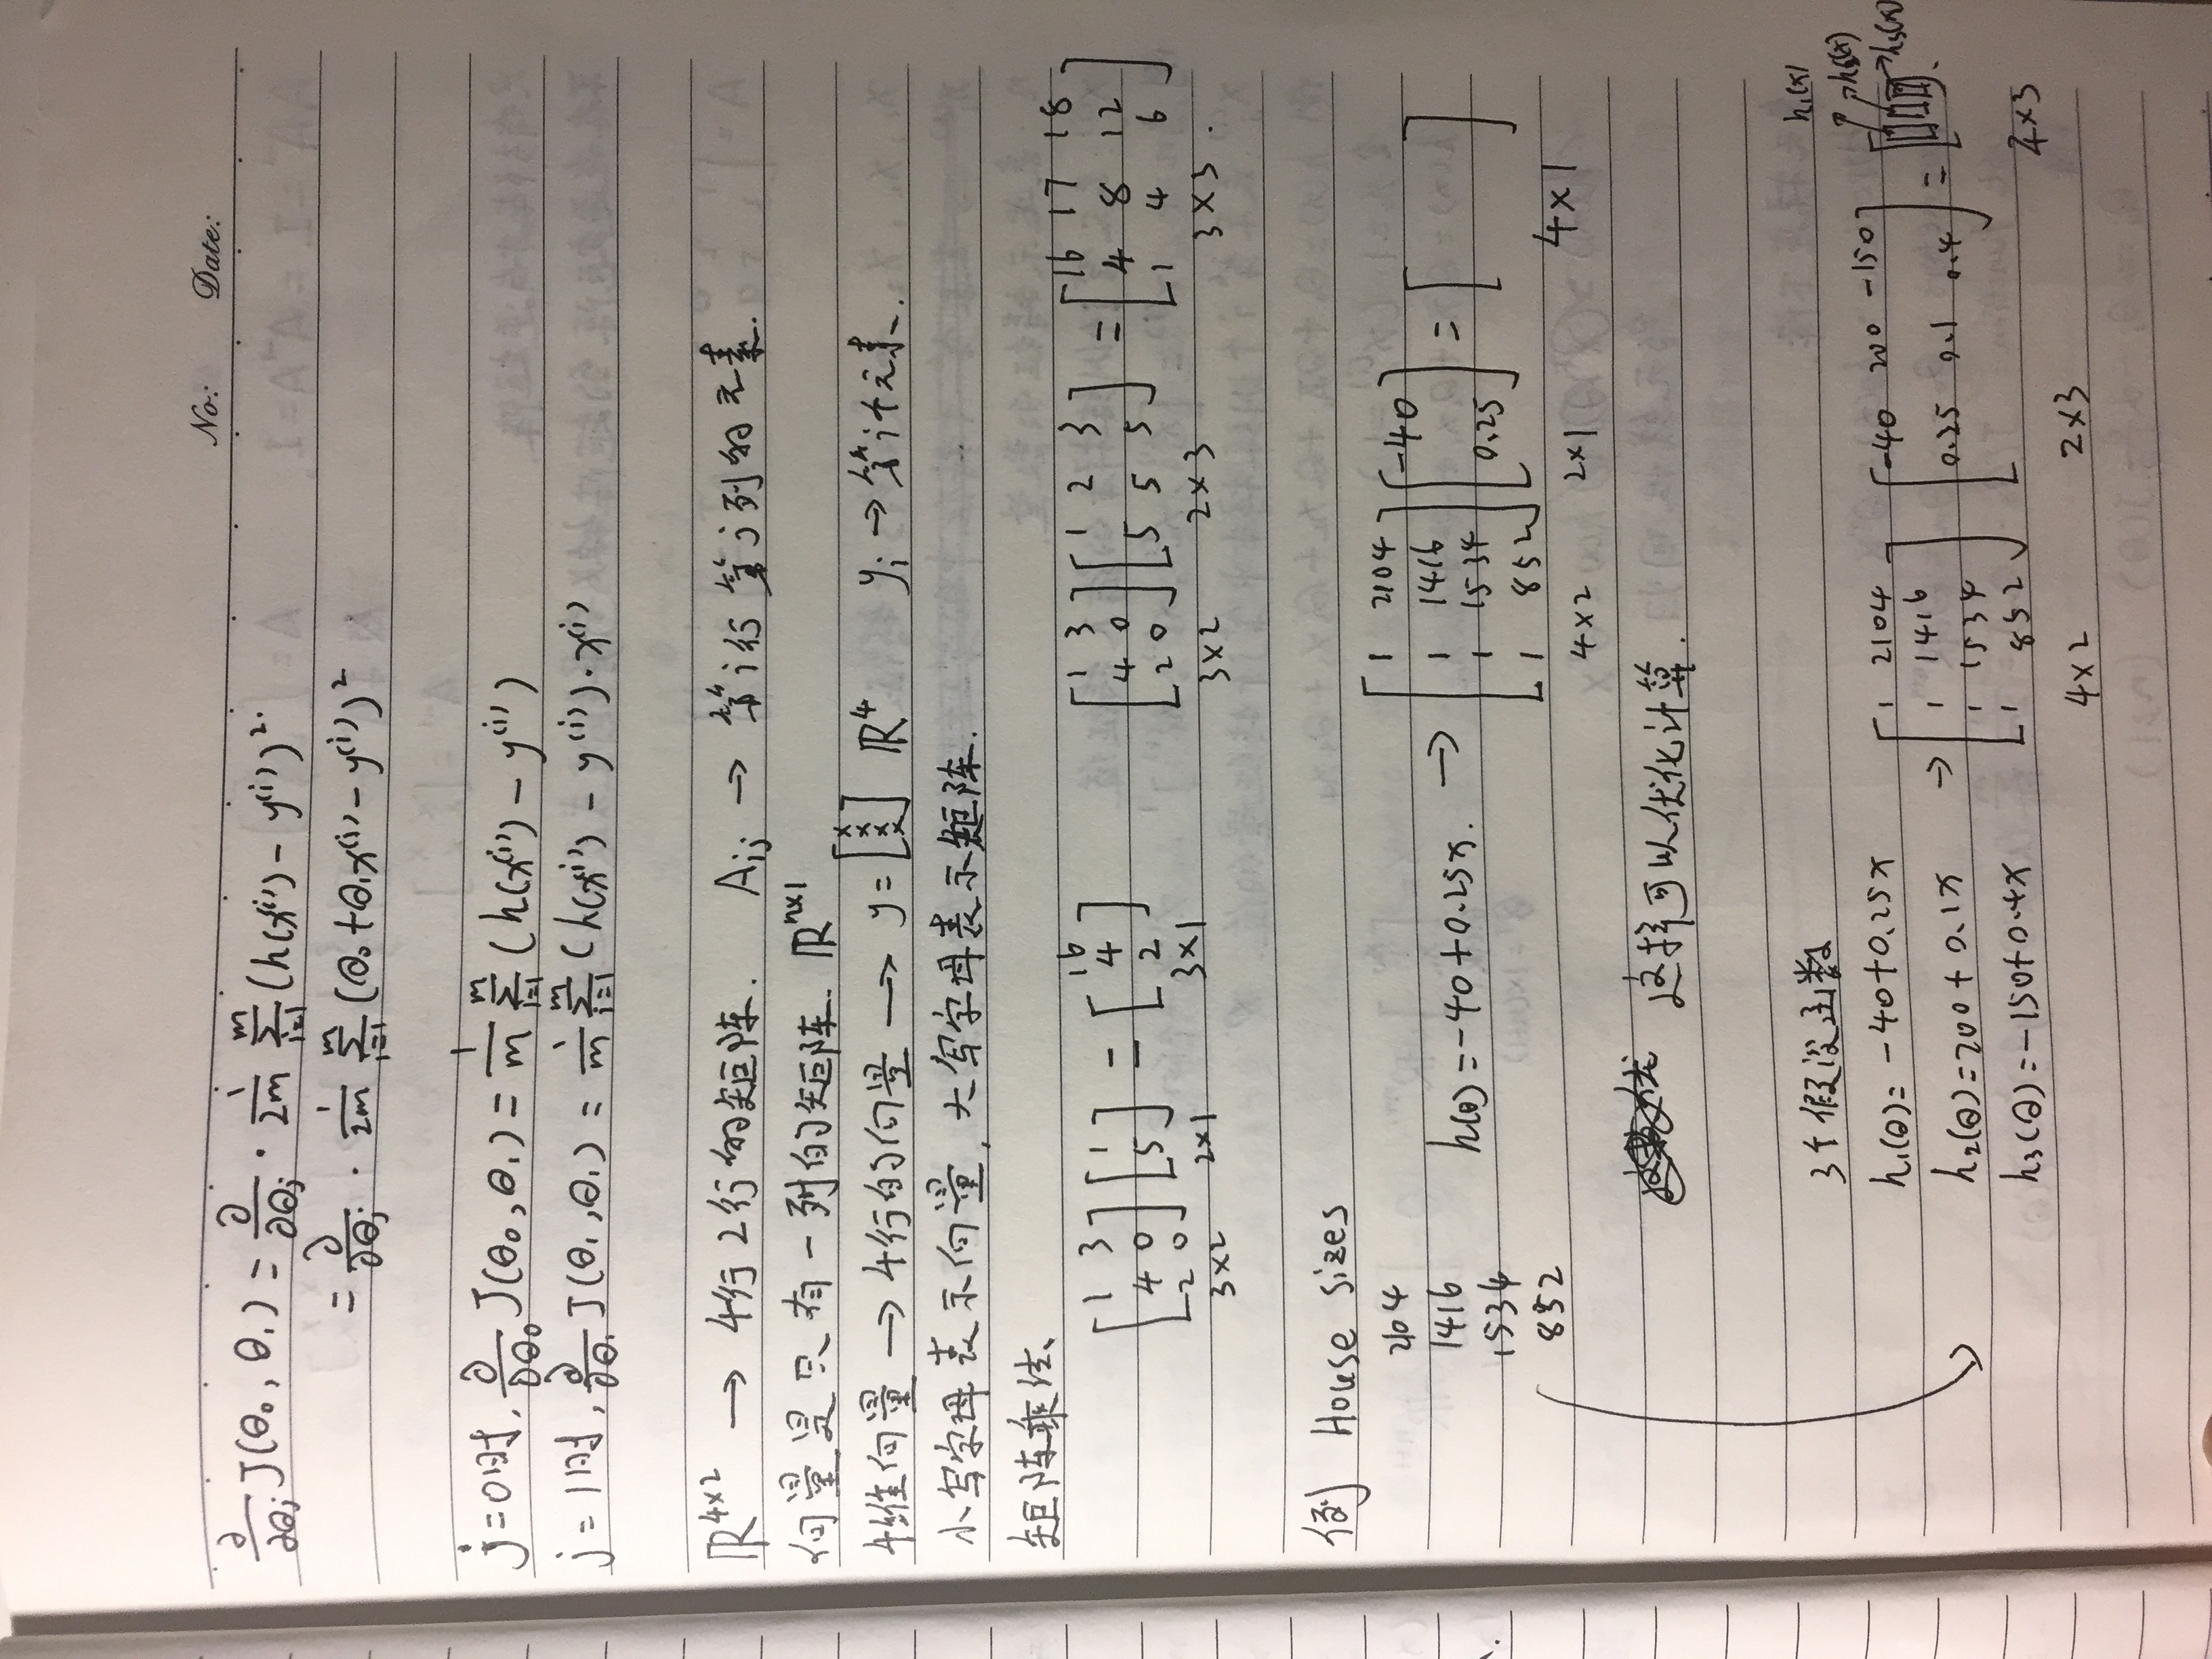 No: Date:
∂/∂θj J(θ₀, θ₁) = ∂/∂θj · 1/2m Σ(i=1→m) (h(x⁽ⁱ⁾) − y⁽ⁱ⁾)²
= ∂/∂θj · 1/2m Σ(i=1→m) (θ₀ + θ₁x⁽ⁱ⁾ − y⁽ⁱ⁾)²
j = 0时, ∂/∂θ₀ J(θ₀, θ₁) = 1/m Σ(i=1→m) (h(x⁽ⁱ⁾) − y⁽ⁱ⁾)
j = 1时, ∂/∂θ₁ J(θ₁, θ₁) = 1/m Σ(i=1→m) (h(x⁽ⁱ⁾) − y⁽ⁱ⁾)·x⁽ⁱ⁾
ℝ⁴ˣ² → 4行2行的矩阵. Aij → 第i行第j列的元素.
向量是只有一列的矩阵. ℝⁿˣ¹
4维向量 → 4行的向量 → y = [x x x x] ℝ⁴ yi → 第i个元素.
小写字母表示向量, 大写字母表示矩阵.
矩阵乘法、
[1 3; 4 0; 2 0] [1; 5] = [16; 4; 2] [1 3; 4 0; 2 0] [1 2 3; 5 5 5] = [16 17 18; 4 8 12; 1 4 6]
3×2 2×1 3×1 3×2 2×3 3×3.
例 House sizes
2104
1416
1534
852
h(θ) = −40 + 0.25x. → [1 2104; 1 1416; 1 1534; 1 852] [−40; 0.25] = [ ]
4×2 2×1 4×1
这样可以优化计算.
3个假设函数
h₁(θ) = −40 + 0.25x
h₂(θ) = 200 + 0.1x
h₃(θ) = −150 + 0.4x
→ [1 2104; 1 1416; 1 1534; 1 852] [−40 200 −150; 0.25 0.1 0.4] = [ ].
h₁(x)
h₂(x)
h₃(x)
4×2 2×3 4×3